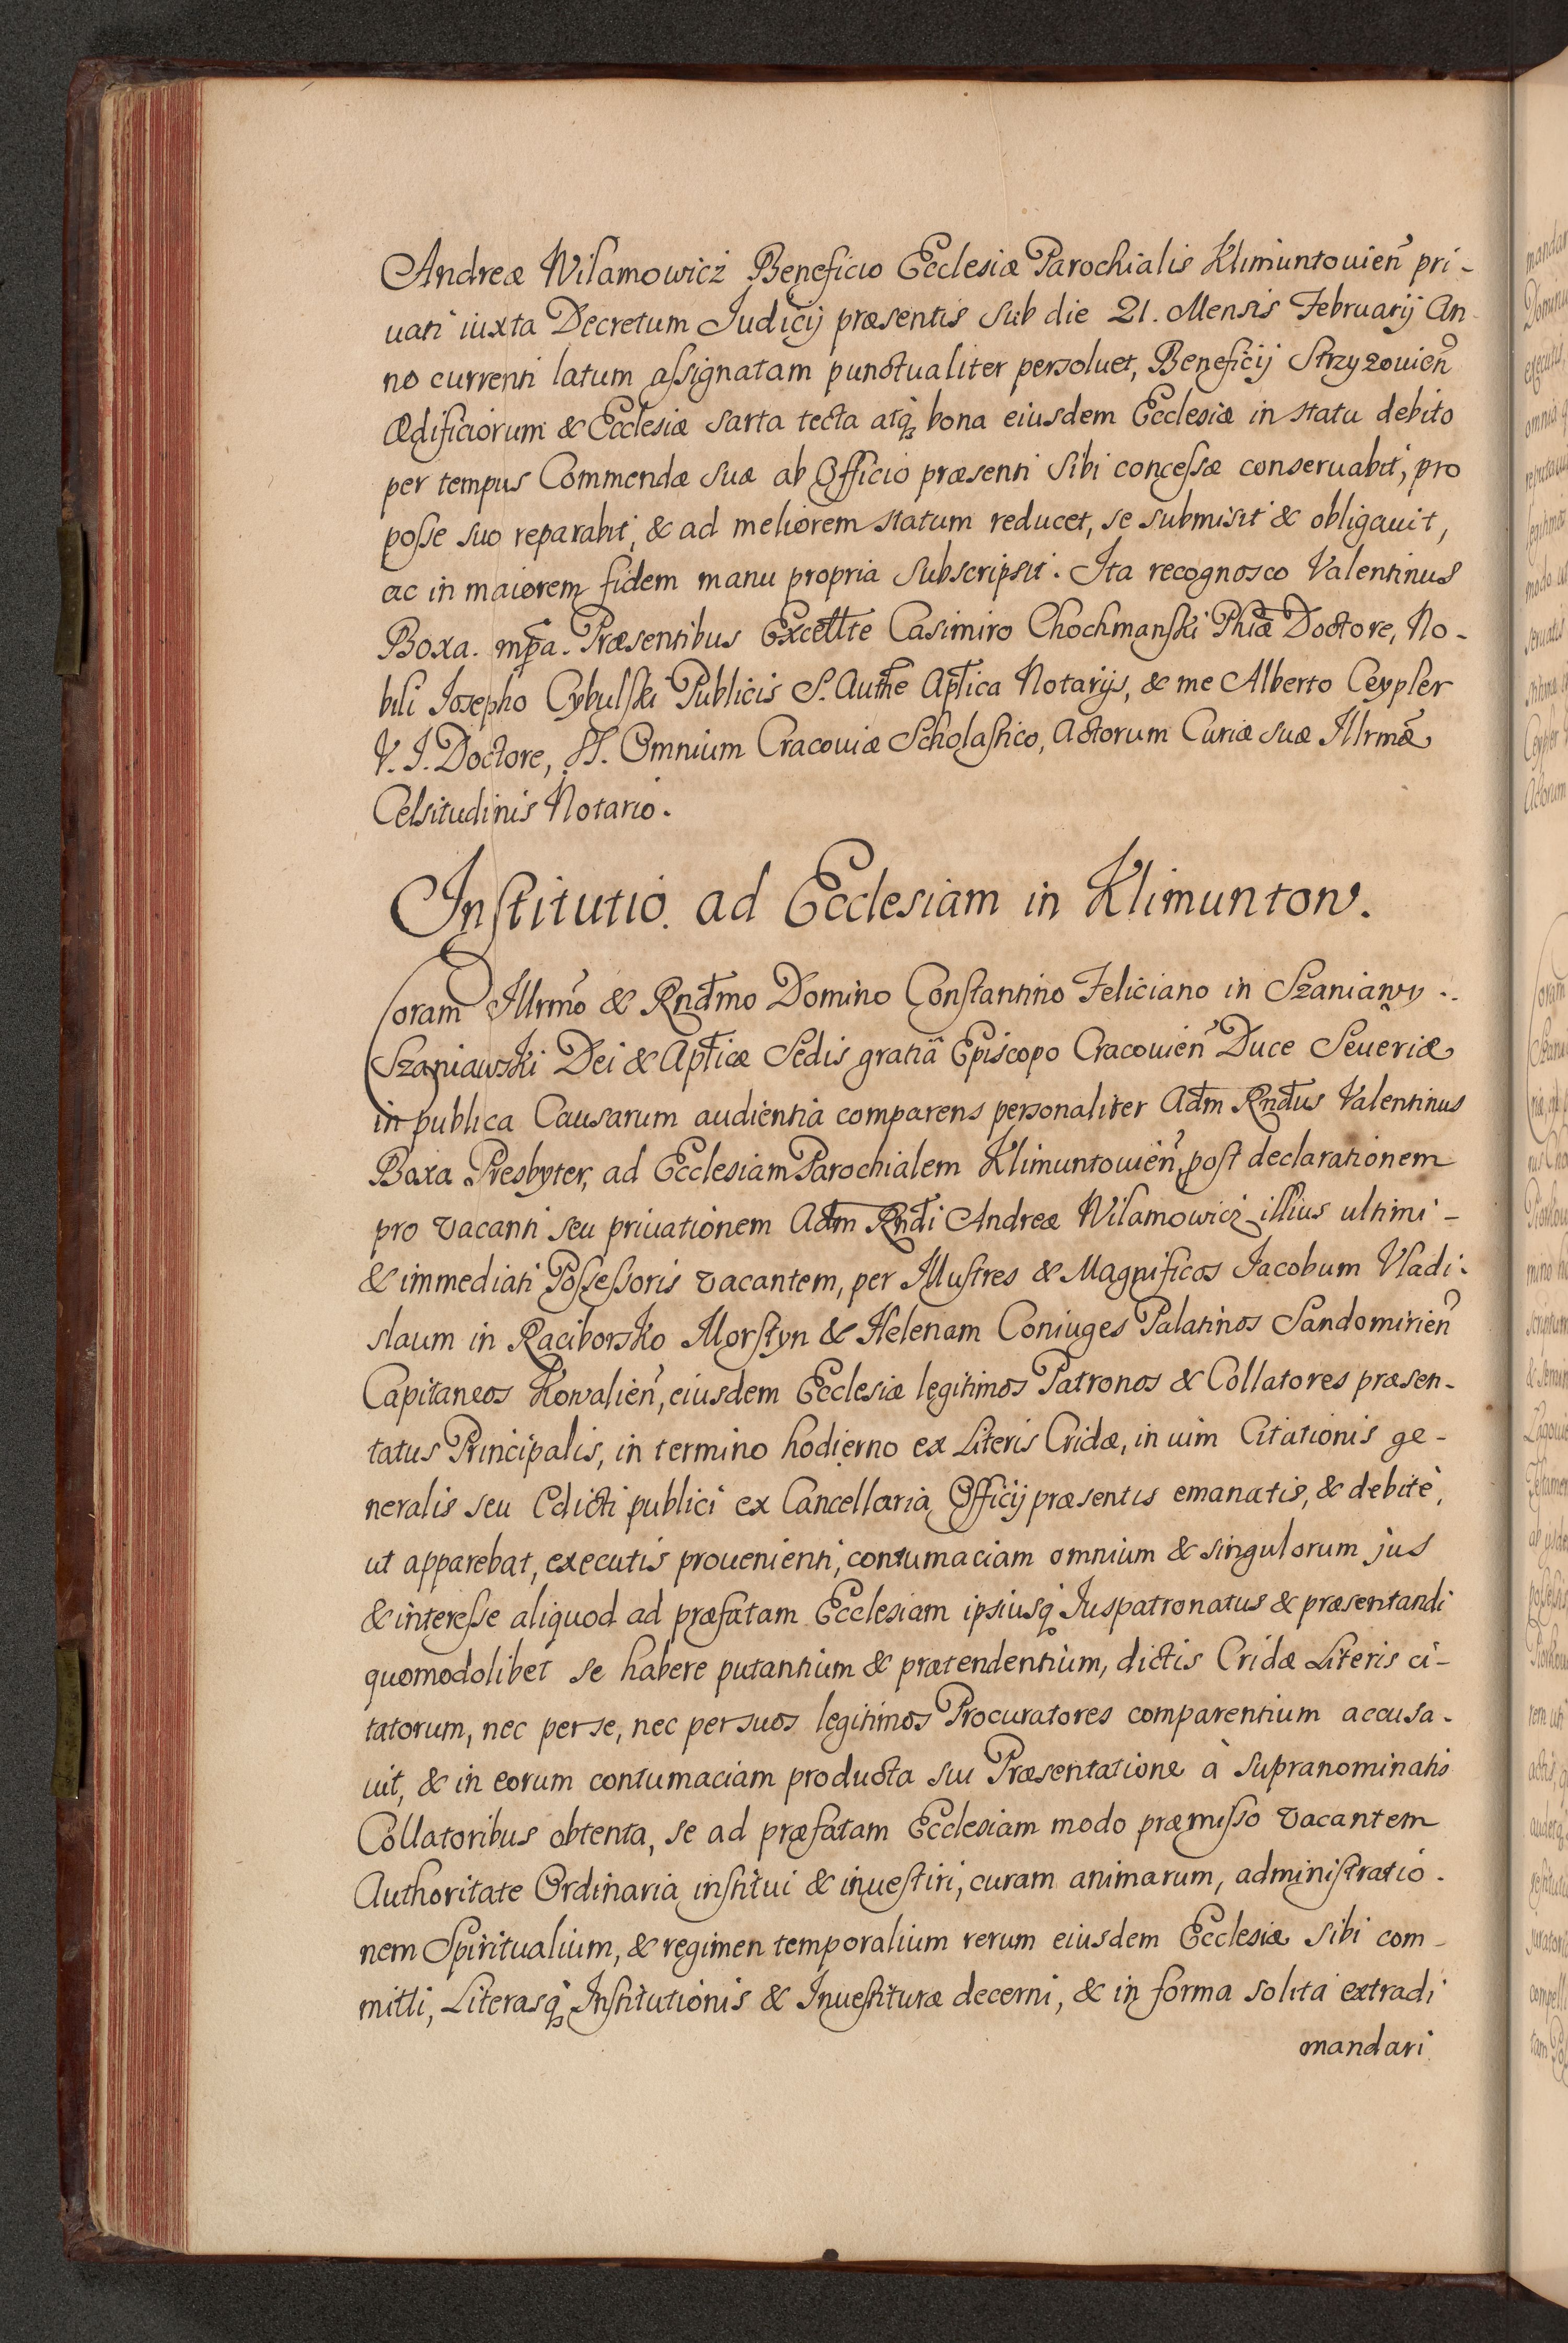 Andreæ Wilamowicz Beneficio Ecclesiæ Parochialis Klimuntouien̄ pri-
uati iuxta Decretum Judicij præsentis sub die 21. Mensis Februarij An-
no currenti latum assignatam punctualiter persoluet, Beneficij Strzyzouien̄
Ædificiorum & Ecclesiæ sarta tecta atq̨ bona eiusdem Ecclesiæ in statu debito
per tempus Commendæ suæ ab Officio præsenti sibi concessæ conseruabit, pro
posse suo reparabit, & ad meliorem statum reducet, se submisit & obligauit,
ac in maiorem fidem manu propria subscripsit. Ita recognosco Valentinus
Boxa. mp̄a. Præsentibus Excell̄te Casimiro Chochmanski Phiǣ Doctore, No-
bili Josepho Cybulski Publicis S. Auth̄e Ap̄lica Notarijs, & me Alberto Ceypler
V. J. Doctore, SS. Omnium Cracouiæ Scholastico, Actorum Curiæ suæ Illrmǣ
Celsitudinis Notario.
Institutio. ad Ecclesiam in Klimuntow.
Coram Illrmō & Rnd̄mo Domino Constantino Feliciano in Szaniawy
Szaniawski Dei & Ap̄licæ Sedis gratiâ Episcopo Cracouien̄ Duce Seueriæ
in publica Causarum audientia comparens personaliter Ad̄m Rnd̄us Valentinus
Boxa Presbyter, ad Ecclesiam Parochialem Klimuntouien̄, post declarationem
pro vacanti seu priuationem Ad̄m Rnd̄i Andreæ Wilamowicz illius ultimi-
& immediati Possessoris vacantem, per Illustres & Magnificos Jacobum Vladi-
slaum in Raciborsko Morstyn & Helenam Coniuges Palatinos Sandomirien̄
Capitaneos Kowalien̄, eiusdem Ecclesiæ legitimos Patronos & Collatores præsen-
tatus Principalis, in termino hodierno ex Literis Cridæ, in uim Citationis ge-
neralis seu Edicti publici ex Cancellaria Officij præsentis emanatis, & debitè,
ut apparebat, executis prouenienti, contumaciam omnium & singulorum jus
& interesse aliquod ad præfatam Ecclesiam ipsiusq̨ Juspatronatus & præsentandi
quomodolibet se habere putantium & prætendentium, dictis Cridæ Literis ci-
tatorum, nec per se, nec per suos legitimos Procuratores comparentium accusa-
uit, & in eorum contumaciam producta sui Præsentatione à supranominatis
Collatoribus obtenta, se ad præfatam Ecclesiam modo præmisso vacantem
Authoritate Ordinaria institui & inuestiri, curam animarum, administratio-
nem Spiritualium, & regimen temporalium rerum eiusdem Ecclesiæ sibi com-
mitti, Literasq̨ Institutionis & Inuestituræ decerni, & in forma solita extradi
mandari